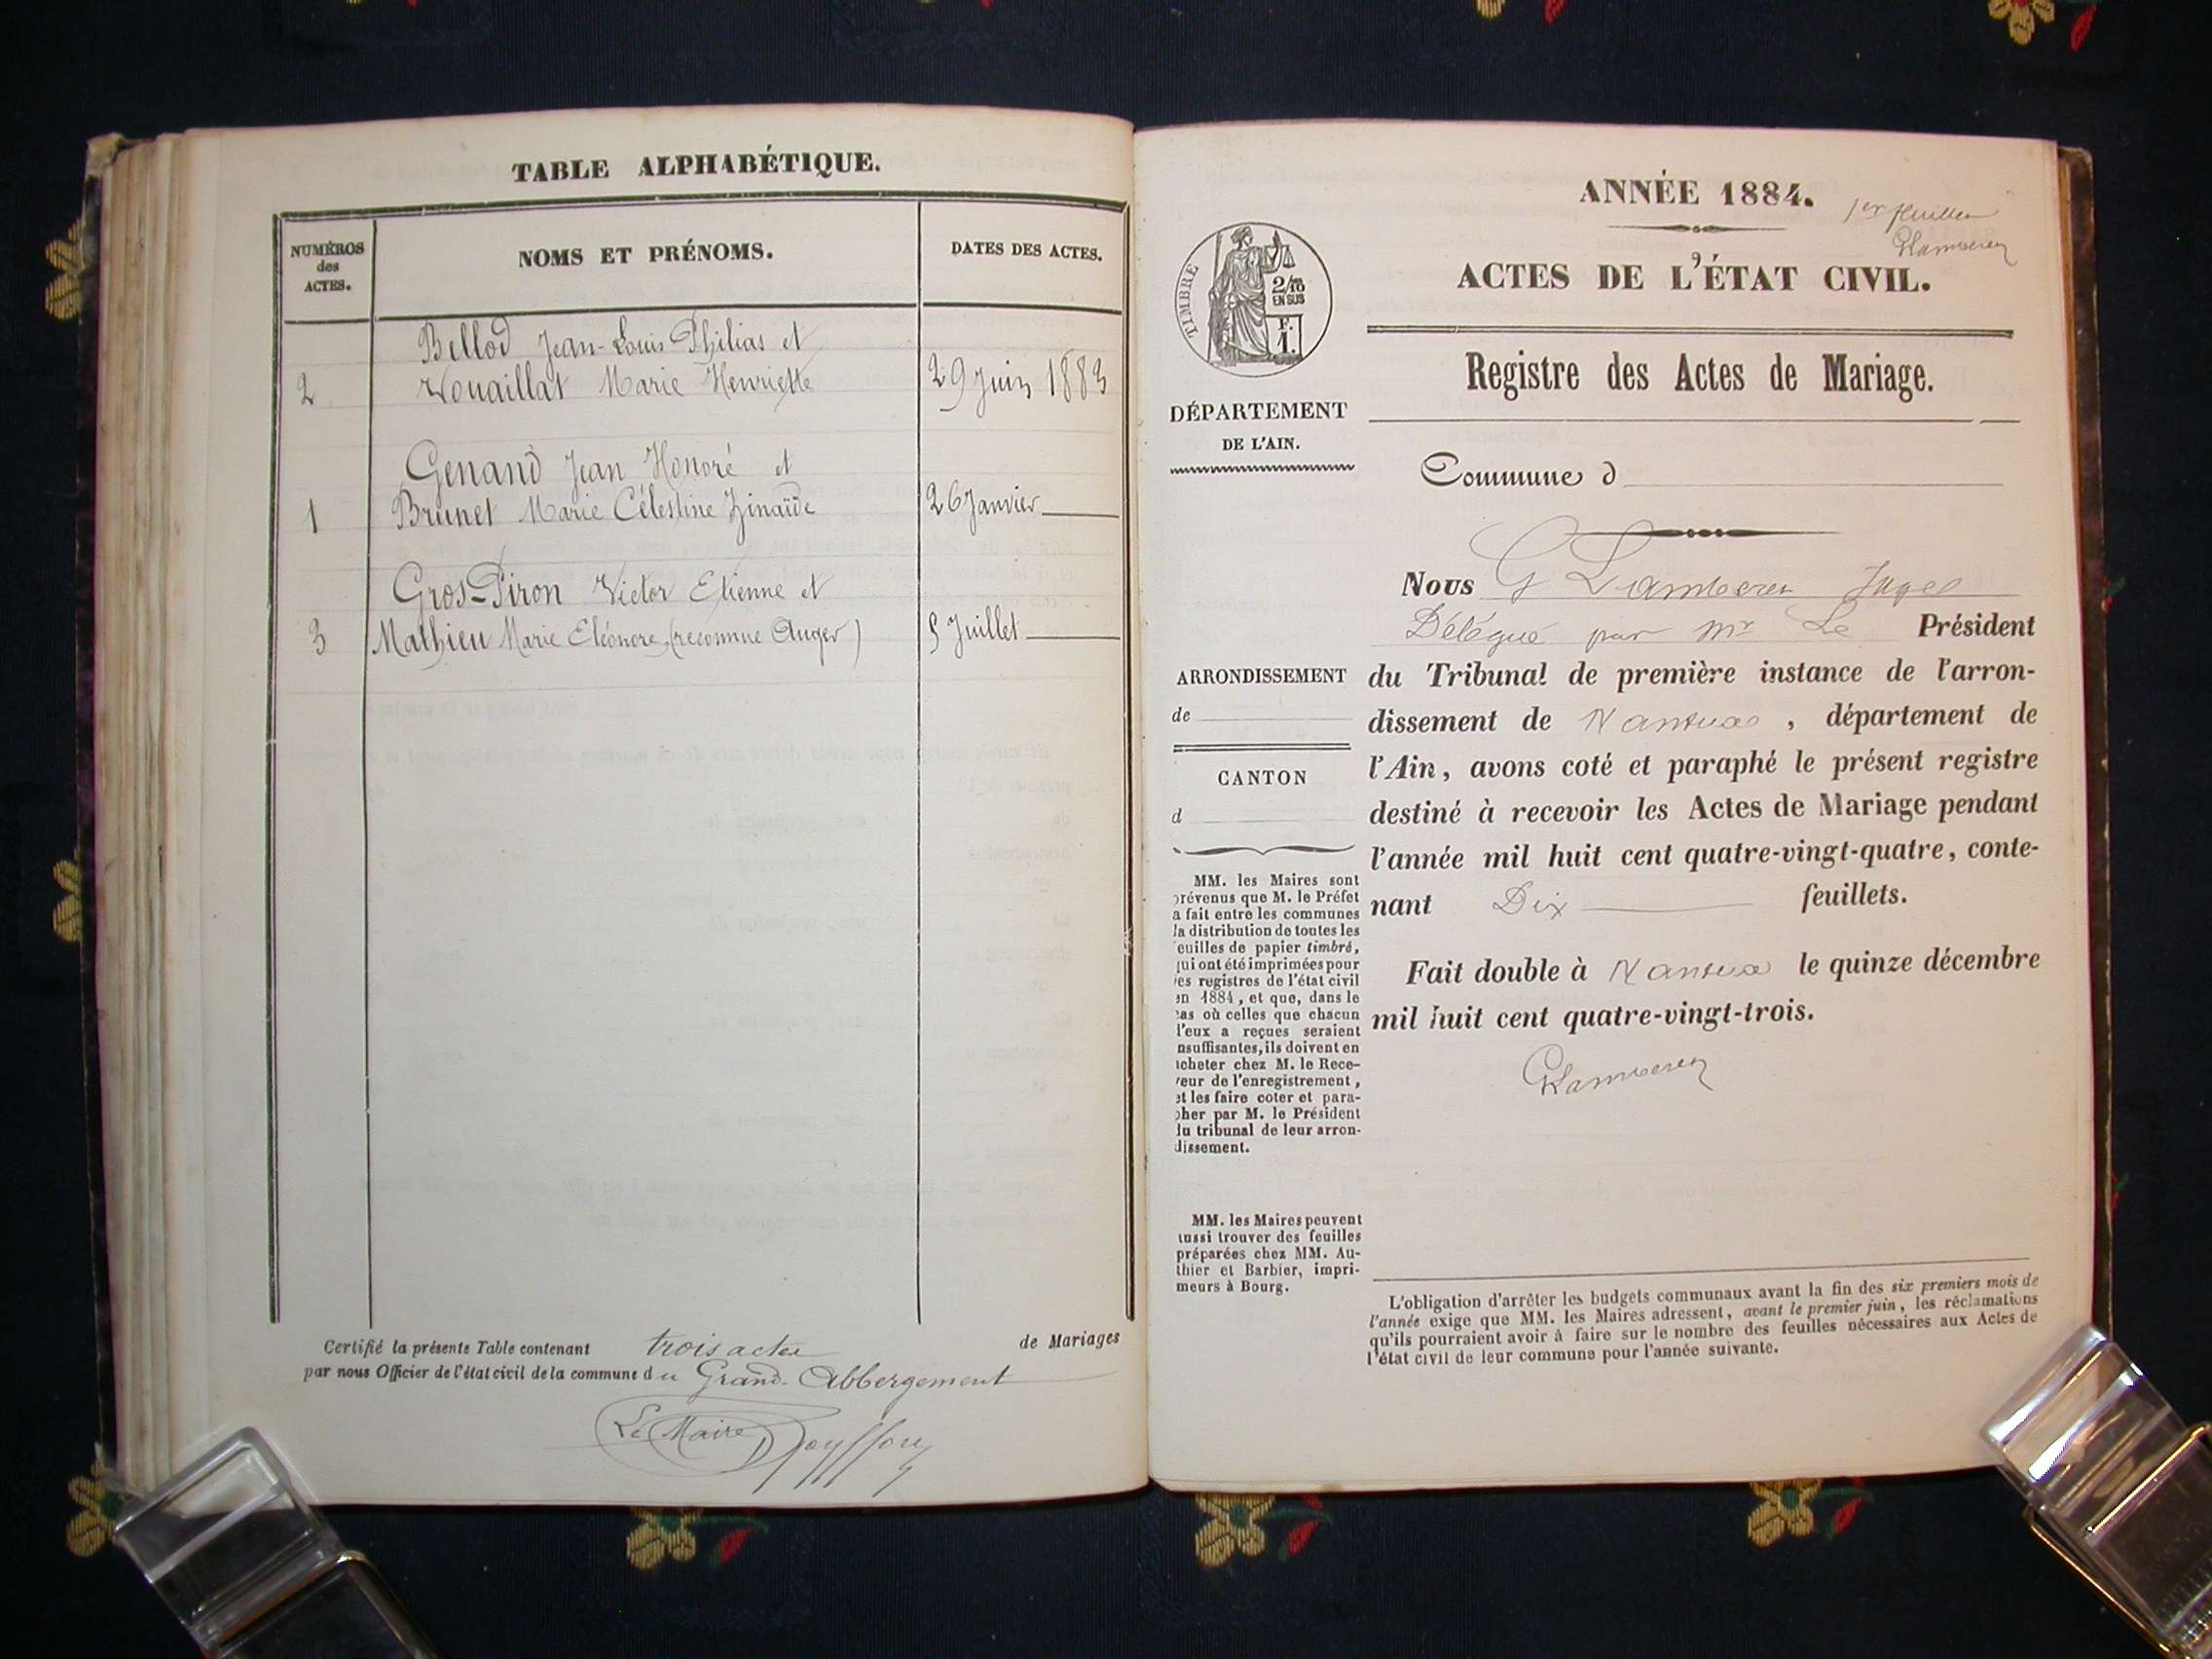 TABLE ALPHABÉTIQUE.
NUMÉROS
des
ACTES.
NOMS ET PRÉNOMS.
DATES DES ACTES.
Bellod Jean-Louis Philias et
2 Vouaillat Marie Henriette 29 Juin 1883
Genand Jean Honoré et
1 Brunet Marie Célestine Zinaïde 26 Janvier
Gros-Piron Victor Etienne et
3 Mathieu Marie Eléonore, (reconnue Auger) 5 Juillet
Certifié la présente Table contenant trois actes de Mariages
par nous Officier de l'état civil de la commune du Grand-Abbergement
Le Maire
ANNÉE 1884.
1er feuillet
ACTES DE L'ÉTAT CIVIL.
TIMBRE
2/10
EN SUS
F.
1.
Registre des Actes de Mariage.
DÉPARTEMENT
DE L'AIN.
Commune d
Nous G Lamberen Juge
Délégué par Mr Le Président
ARRONDISSEMENT
de
CANTON
d
du Tribunal de première instance de l'arron-
dissement de Nantua, département de
l'Ain, avons coté et paraphé le présent registre
destiné à recevoir les Actes de Mariage pendant
l'année mil huit cent quatre-vingt-quatre, conte-
nant Dix feuillets.
Fait double à Nantua le quinze décembre
mil huit cent quatre-vingt-trois.
GLamberen
MM. les Maires sont
prévenus que M. le Préfet
a fait entre les communes
la distribution de toutes les
feuilles de papier timbré,
qui ont été imprimées pour
les registres de l'état civil
en 1884, et que, dans le
cas où celles que chacun
d'eux a reçues seraient
insuffisantes, ils doivent en
acheter chez M. le Rece-
veur de l'enregistrement,
et les faire coter et para-
pher par M. le Président
du tribunal de leur arron-
dissement.
MM. les Maires peuvent
aussi trouver des feuilles
préparées chez MM. Au-
thier et Barbier, impri-
meurs à Bourg.
L'obligation d'arrêter les budgets communaux avant la fin des six premiers mois de
l'année exige que MM. les Maires adressent, avant le premier juin, les réclamations
qu'ils pourraient avoir à faire sur le nombre des feuilles nécessaires aux Actes de
l'état civil de leur commune pour l'année suivante.